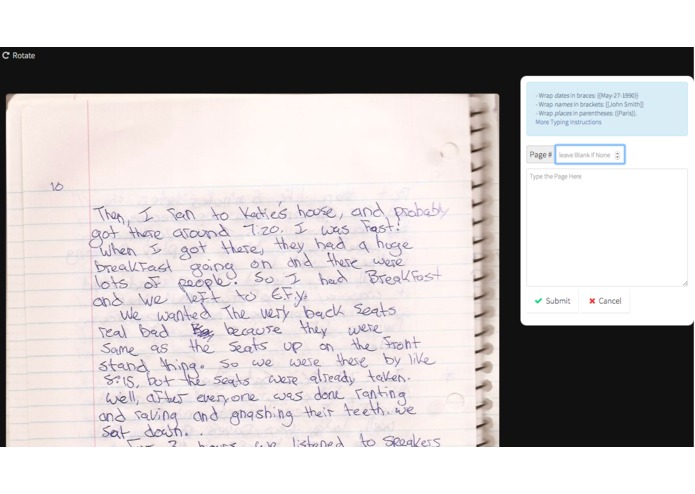 Rotate
- Wrap dates in braces: {{May-27-1990}}
- Wrap names in brackets: [[John Smith]]
- Wrap places in parentheses: ((Paris)).
More Typing Instructions
Page #
leave Blank if None
Type the Page Here
Submit
Cancel
10
Then, I ran to Katie's house, and probably
got there around 7:20. I was fast!
When I got there, they had a huge
breakfast going on and there were
lots of people. So I had Breakfast
and we left to E.F.y.
We wanted The very back seats
real bad because they were
same as the seats up on the front
stand thing. So we were there by like
8:15, but the seats were already taken.
Well, after everyone was done ranting
and raving and gnashing their teeth. we
sat down.
hours we listened to speakers